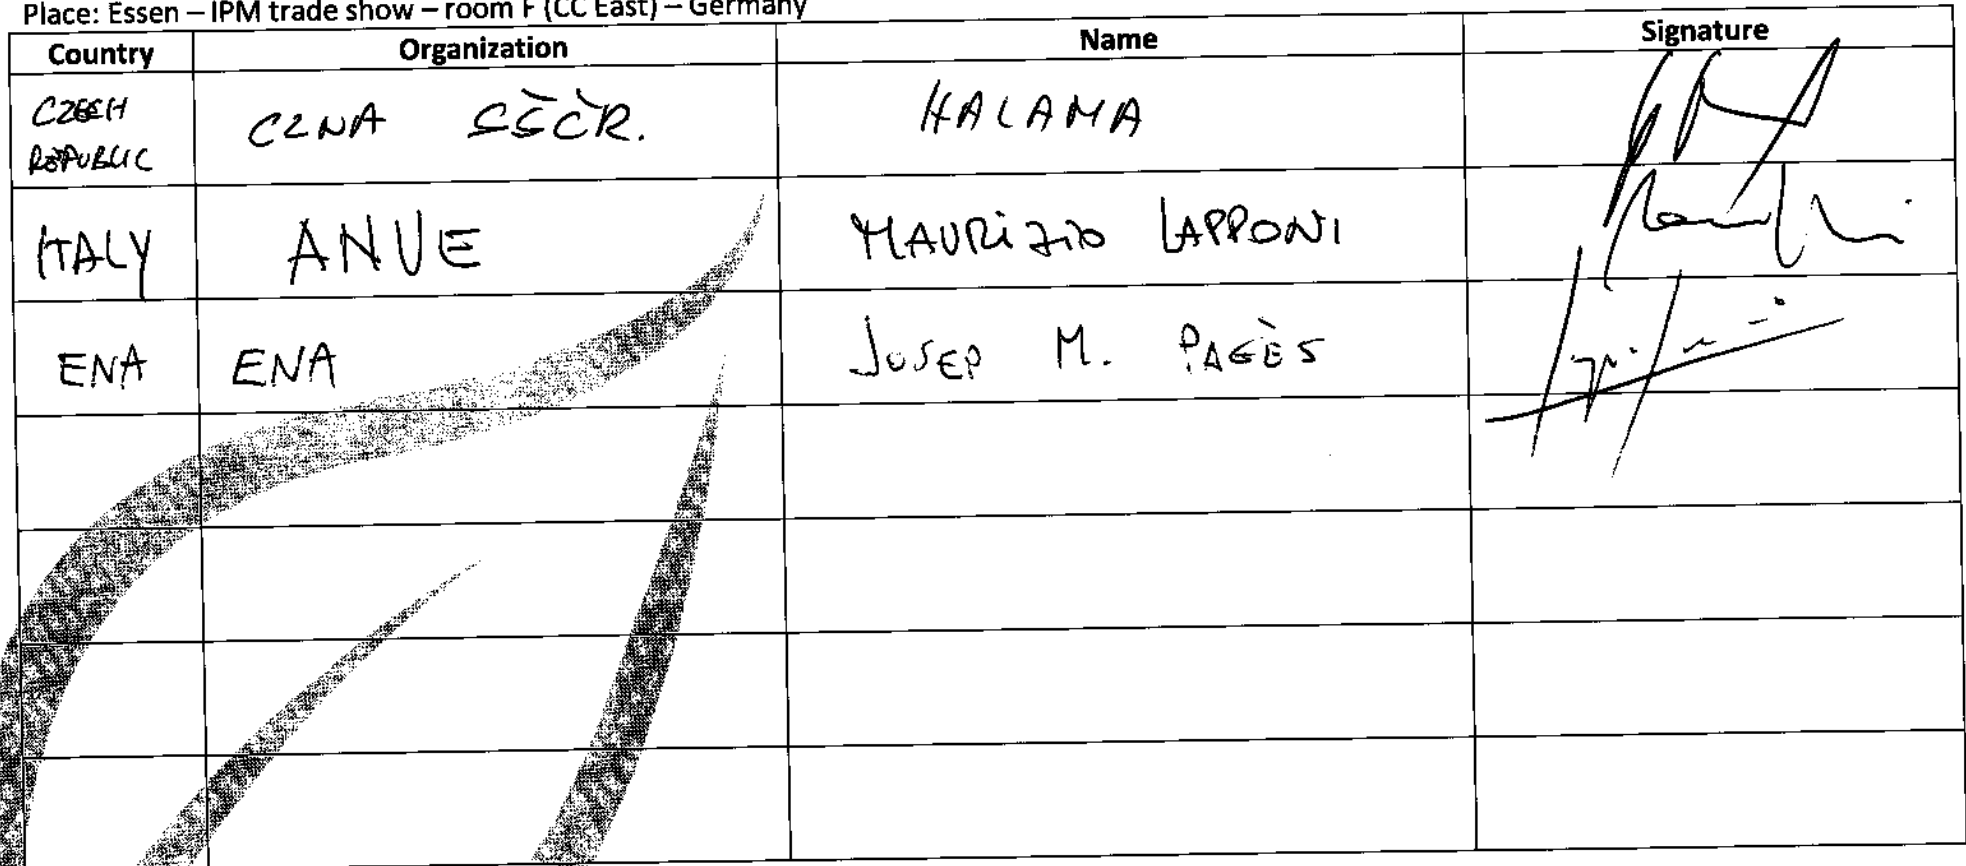 Place: Essen – IPM trade show – room F (CC East) – Germany
Country Organization Name Signature
CZECH REPUBLIC CZNA SŠČR. HALAMA
ITALY ANVE MAURIZIO LAPPONI
ENA ENA JOSEP M. PAGÈS